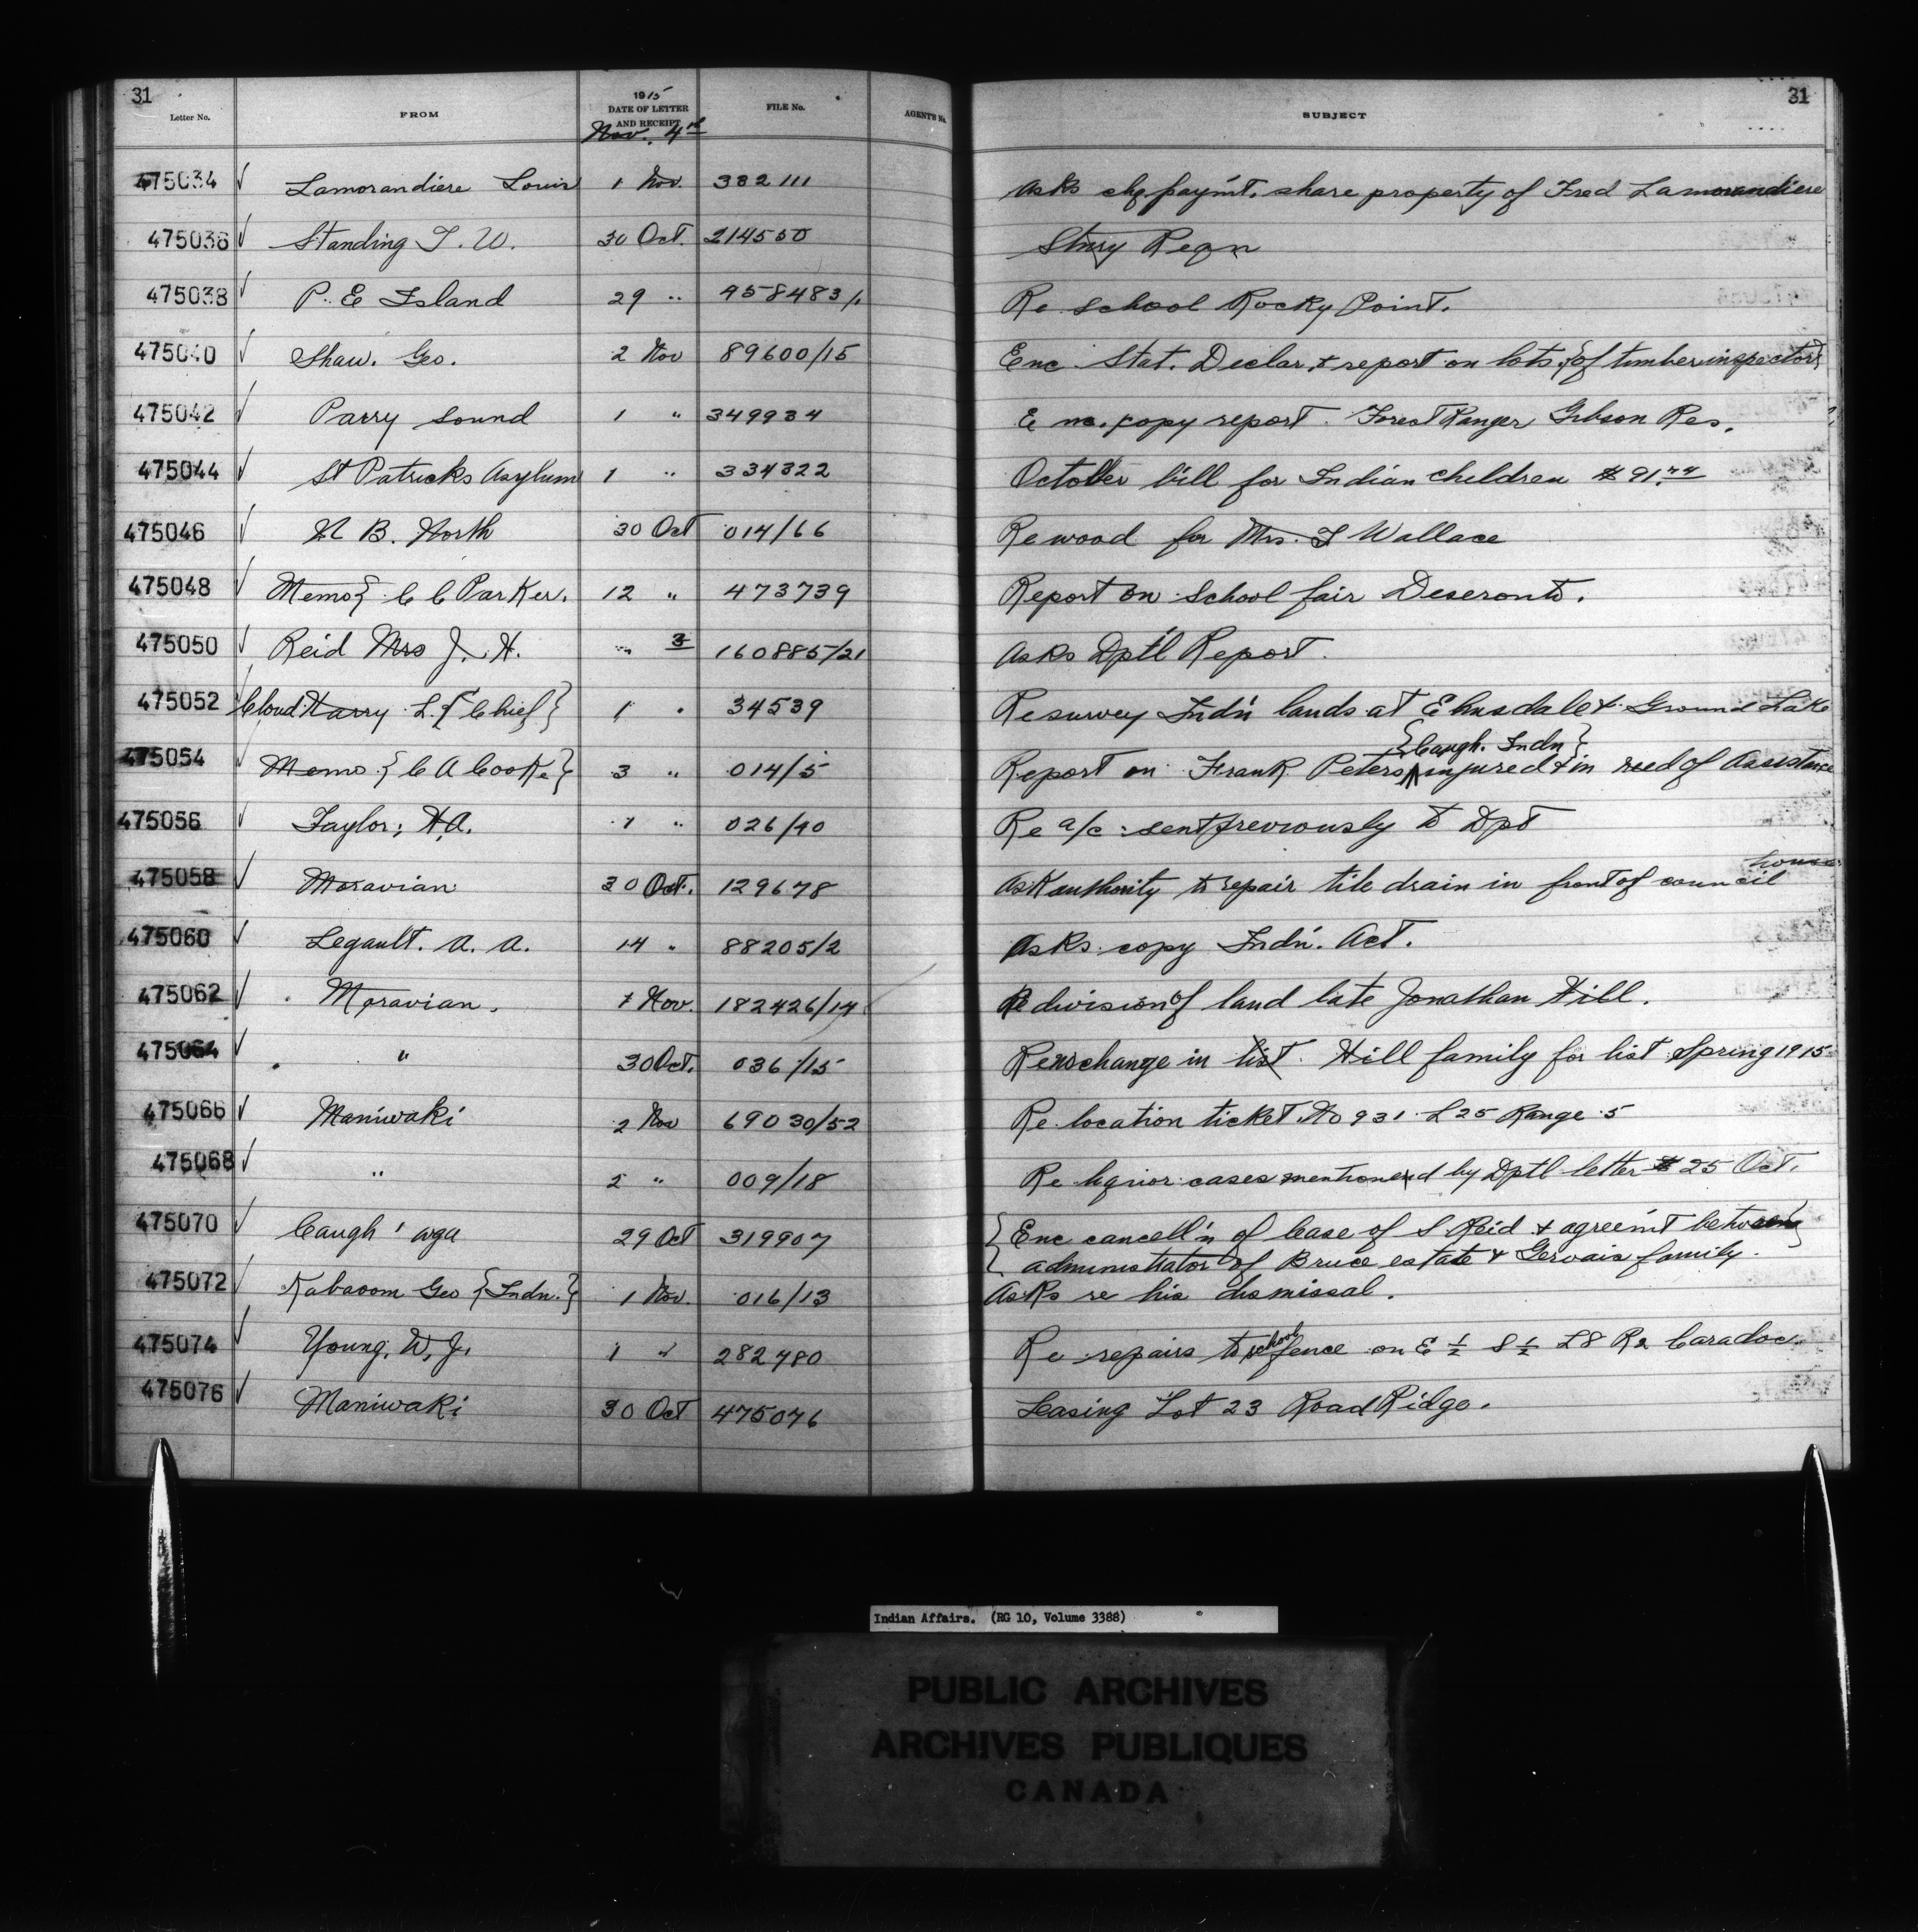 31
Letter No. FROM 1915 DATE OF LETTER AND RECEIPT FILE No. AGENT'S No. SUBJECT 31
Nov. 4th
475034 √ Lamorandiere Louis 1 Nov. 382111 Asks chq. paym't. share property of Fred Lamorandiere
475036 √ Standing T. W. 30 Oct. 214550 Stn'y Reqn
475038 √ P. E Island 29 " 458483/1 Re school Rocky Point.
475040 √ Shaw. Geo. 2 Nov 89600/15 Enc Stat. Declar. & report on lots {of timber inspector}
475042 √ Parry Sound 1 " 349934 Enc. copy report. Forest Ranger Gibson Res.
475044 √ St Patricks Asylum 1 " 334322 October bill for Indian children $91.
475046 √ N B. North 30 Oct 014/66 Re wood for Mrs. T Wallace
475048 √ Memo { C C Parker. 12 " 473739 Report on School fair Deseronto.
475050 √ Reid Mrs J. H. " 3 160885/21 Asks Dptl Report.
475052 √ Cloud Harry L. {Chief} 1 " 34539 Re survey Indn lands at & Ground Lake
{Caugh. Indn}
475054 √ Memo {C A Cooke} 3 " 014/5 Report on Frank Peters ∧ injured & in need of Assistance
475056 √ Taylor, H.A. 1 " 026/40 Re a/c sent previously to Dpt
house
475058 √ Moravian 30 Oct. 129678 Ask authority to repair tile drain in front of council
475060 √ Legault. A. A. 14 " 88205/2 Asks copy Indn. Act.
475062 √ Moravian. 1 Nov. 182426/14 Re division of land late Jonathan Hill.
475064 √ " 30 Oct. 036/15 Re change in list. Hill family for list Spring 1915
475066 √ Maniwaki 2 Nov 69030/52 Re location ticket No 931 L 25 Range 5
475068 √ " 2 " 009/18 Re liquior cases mentioned by Dptl letter 25 Oct.
475070 √ Caugh'wga 29 Oct 319907 {Enc cancell'n of lease of S Reid & agreem't between}
administrator of Bruce estate & Gervais family.
475072 √ Kabaoom Geo {Indn.} 1 Nov. 016/13 Asks re his dismissal.
475074 √ Young, W. J. 1 " 282480 Re repairs to school fence on E ½ S ½ L8 R2 Caradoc.
475076 √ Maniwaki 30 Oct 475076 Leasing Lot 23 Road Ridge.
Indian Affairs. (RG 10, Volume 3388)
PUBLIC ARCHIVES
ARCHIVES PUBLIQUES
CANADA